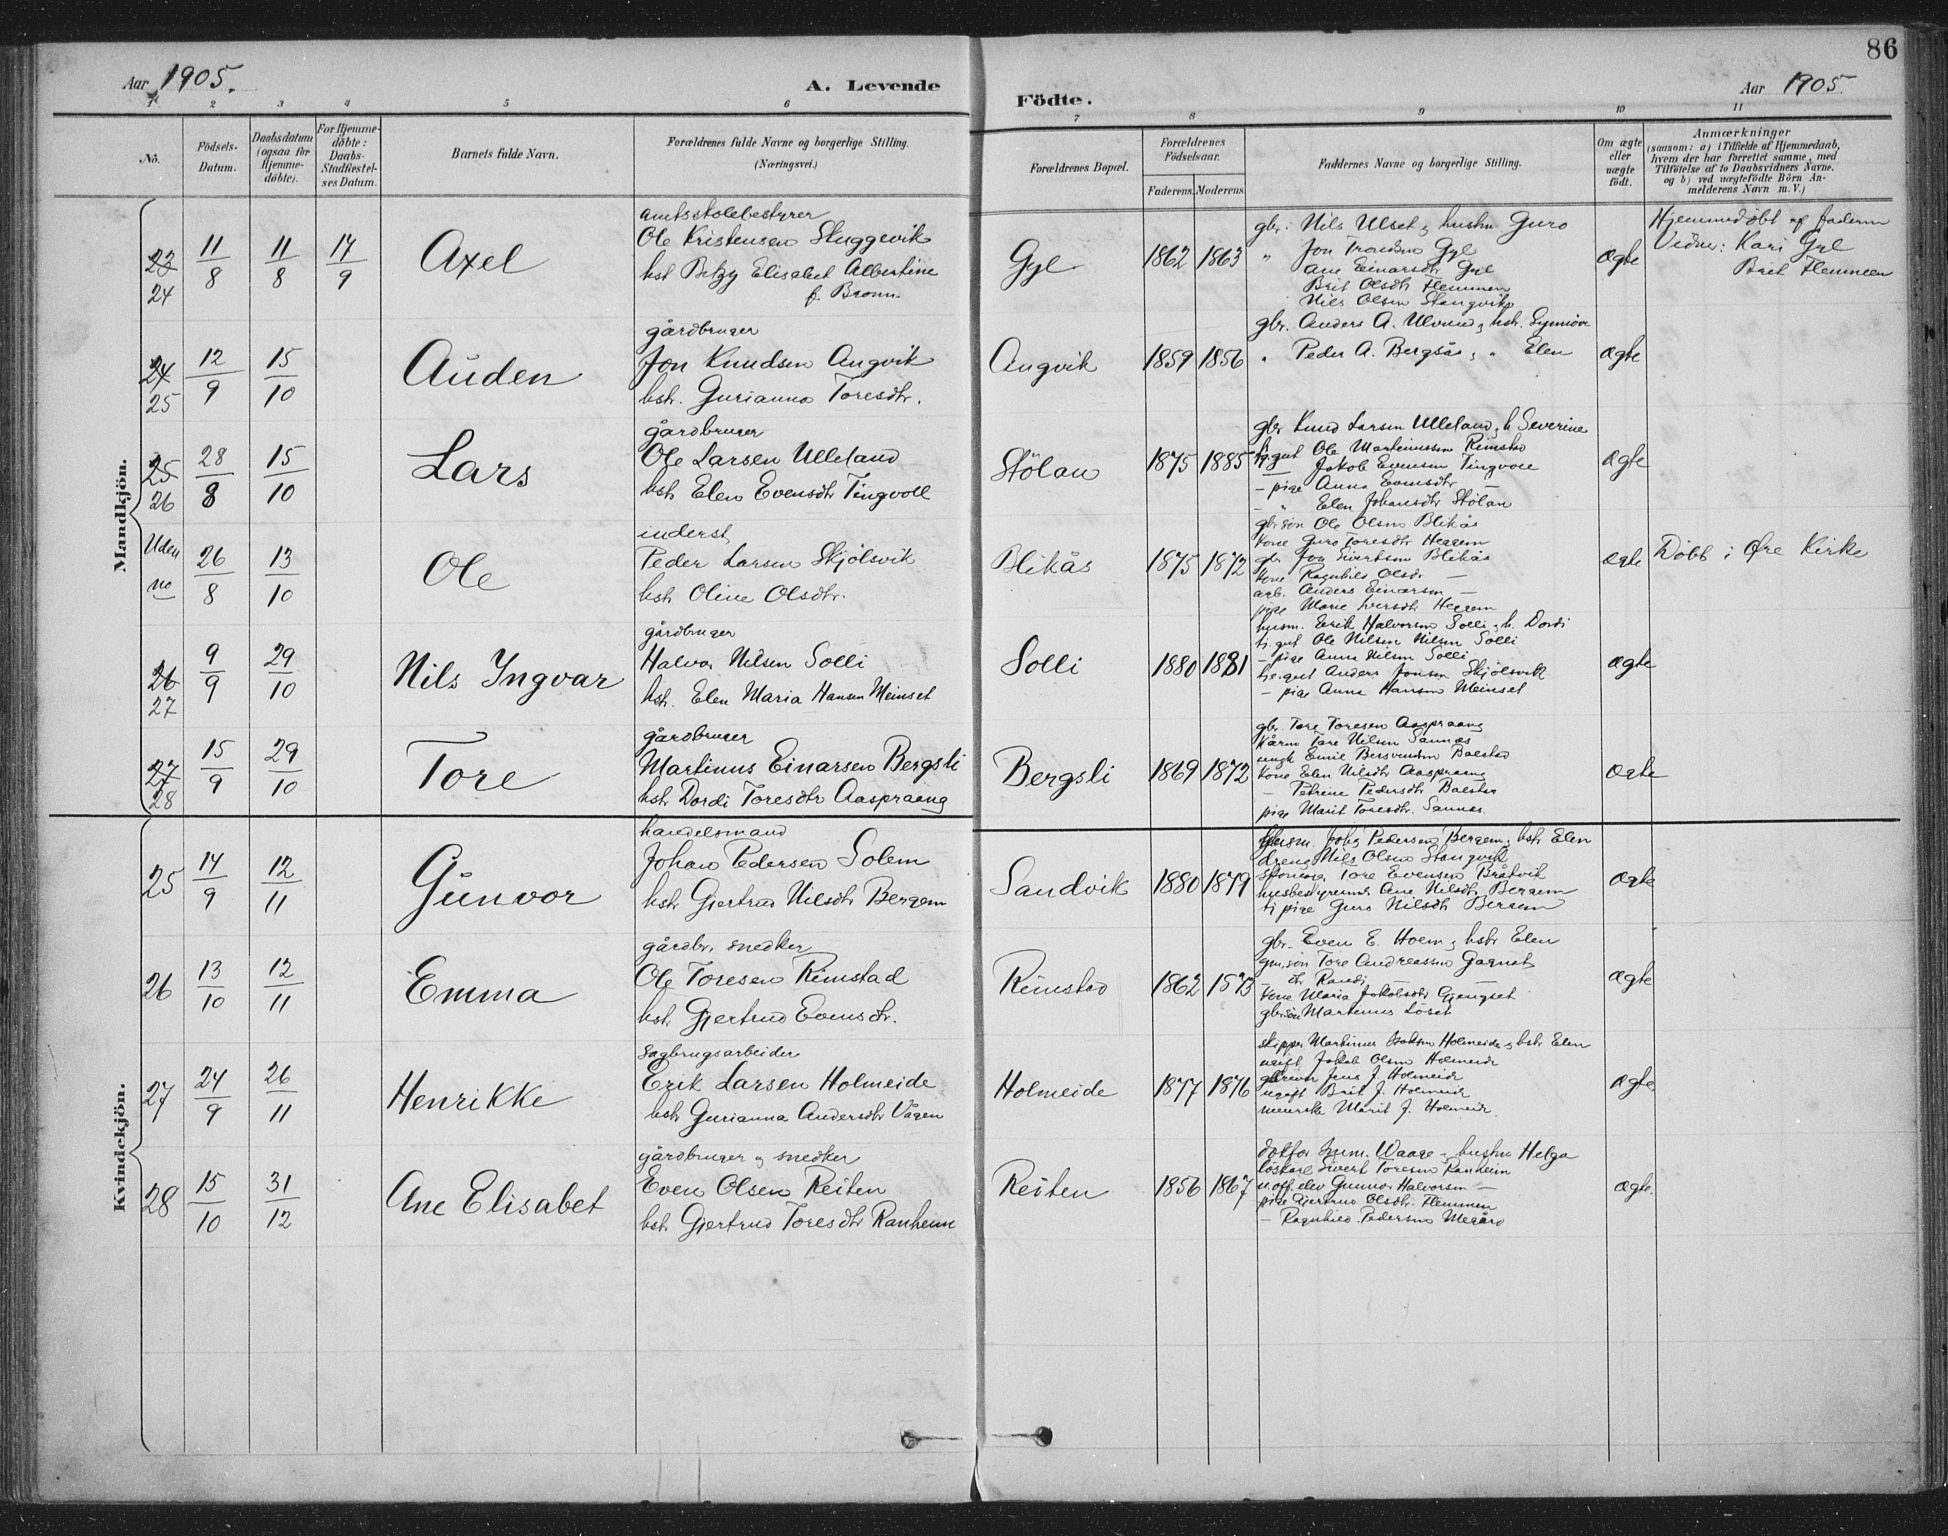 86
Aar 1905.
A. Levende
Födte.
Aar 1905.
1 2 3 4 5 6 7 8 9 10 11
No.
Födsels-Datum.
Daabsdatum (ogsaa for Hjemme-döbte).
For Hjemme-döbte: Daabs-Stadfæstel-ses Datum.
Barnets fulde Navn.
Forældrenes fulde Navne og borgerlige Stilling.
(Næringsvei.)
Forældrenes Bopæl.
Forældrenes Födselsaar.
Faderens. Moderens.
Faddernes Navne og borgerlige Stilling.
Om ægte eller uægte födt.
Anmærkninger
(saasom: a) i Tilfælde af Hjemmedaab,
hvem der har forrettet samme, med
Tilföielse af to Daabsvidners Navne.
og b) ved uægtefödte Börn An-
melderens Navn m. V.)
Mandkjön.
23 24
11/8 11/8 17/9
Axel
amtsskolebestyrer
Ole Kristensen Skuggevik
hst Betzy Elisabet Albertine
f. Brown.
Gyl
1862 1863
gbr. Nils Ulset og hustru Guro
" Jon Trondsen Gyl
Ane Einarsdtr Gyl
Brit Olsdtr Flemmen
Nils Olsen Stangvik
ægte
Hjemmedøbt af faderen
Vidner: Kari Gyl
Brit Flemmen
24 25
12/9 15/10
Auden
gårdbruger
Jon Knudsen Angvik
hst. Gurianna Toresdtr.
Angvik
1859 1856
gbr. Anders A. Ulvund og hstr. Synnöve
" Peder A. Bergsås " Elen
ægte
25 26
28/8 15/10
Lars
gårdbruger
Ole Larsen Ulleland
hst. Elen Evensdtr Tingvoll
Stölan
1875 1885
gbr Knud Larsen Ulleland og h Severine
gut Ole Martinussen Rimstad
— Jakob Evensen Tingvoll
— pige Anna Evensdtr —
— " Elen Johansdtr Stölan
ægte
Uden no
26/8 13/10
Ole
inderst
Peder Larsen Skjölsvik
hst. Oline Olsdtr.
Blikås
1875 1872
gbr. sön Ole Olsen Blikås
kone Guro Toresdtr Heggem
gbr Jon Sivertsen Blikås
kone Ragnhild Olsdr —
arb. Anders Einarsen —
pige Marie Iversdtr Heggem
ægte
Döbt i Øre Kirke
26 27
9/9 29/10
Nils Yngvar
gårdbruger
Halvor Nilsen Solli
hst. Elen Maria Hansen Meinset
Solli
1880 1881
husm. Erik Halvorsen Solli og h. Dordi
tj. gut Ole Nilsen Nilsen Solli
— pige Anna Nilsen Solli
tj. gut Anders Jonsen Skjölsvik
— pige Anna Hansen Meinset
ægte
27 28
15/9 29/10
Tore
gårdbruger
Martinus Einarsen Bergsli
hst. Dordi Toresdtr Aaspraang
Bergsli
1869 1872
gbr. Tore Toresen Aaspraang
kårm Tore Nilsen Sannes
ungk Emil Bersvendsen Boelstad
kone Elen Nilsdtr Aaspraang
— Petrine Pedersdtr Boelstad
pige Marit Toresdtr. Sannes
ægte
Kvindekjön.
25
14/9 12/11
Gunvor
handelsmand
Johan Pedersen Solem
hst. Gjertrud Nilsdtr Bergem
Sandvik
1880 1879
husm. John Pedersen Bergem og hstr Elen
dreng Nils Olsen Stangvik
Tore Evensen Bråtvik
husbestyrerinde Ane Nilsdtr Bergem
tj pige Guro Nilsdtr Bergem
ægte
26
13/10 12/11
Emma
gårdbr. snedker
Ole Toresen Rimstad
hst. Gjertrud Evensdr.
Rimstad
1862 1873
gbr. Even E. Hoem og hstr Elen
gm. sön Tore Andreassen Gagnat
— dt Randi —
kone Maria Jakobsdtr Gjengset
gbrsön Martinus Löset
ægte
27
24/9 26/11
Henrikke
sagbrugsarbeider
Erik Larsen Holmeide
hst Gurianna Andersdtr Vågen
Holmeide
1877 1876
skipper Martinus Holmeide og hstr Elen
ugift Jakob Olsen Holmeide
Jens J. Holmeide
ugift Brit J. Holmeide
Marit J. Holmeide
ægte
28
15/10 31/12
Ane Elisabet
gårdbruger og snedker
Even Olsen Reiten
hst. Gjertrud Toresdtr Ranheim
Reiten
1856 1867
doktor Waage og hustru Helga
löskarl Sivert Toresen Ranheim
u.off. elev Gunnar Halvorsen —
pige Gjertrud Olsdtr. Flemmen
— Ragnhild Pedersen Megård
ægte.